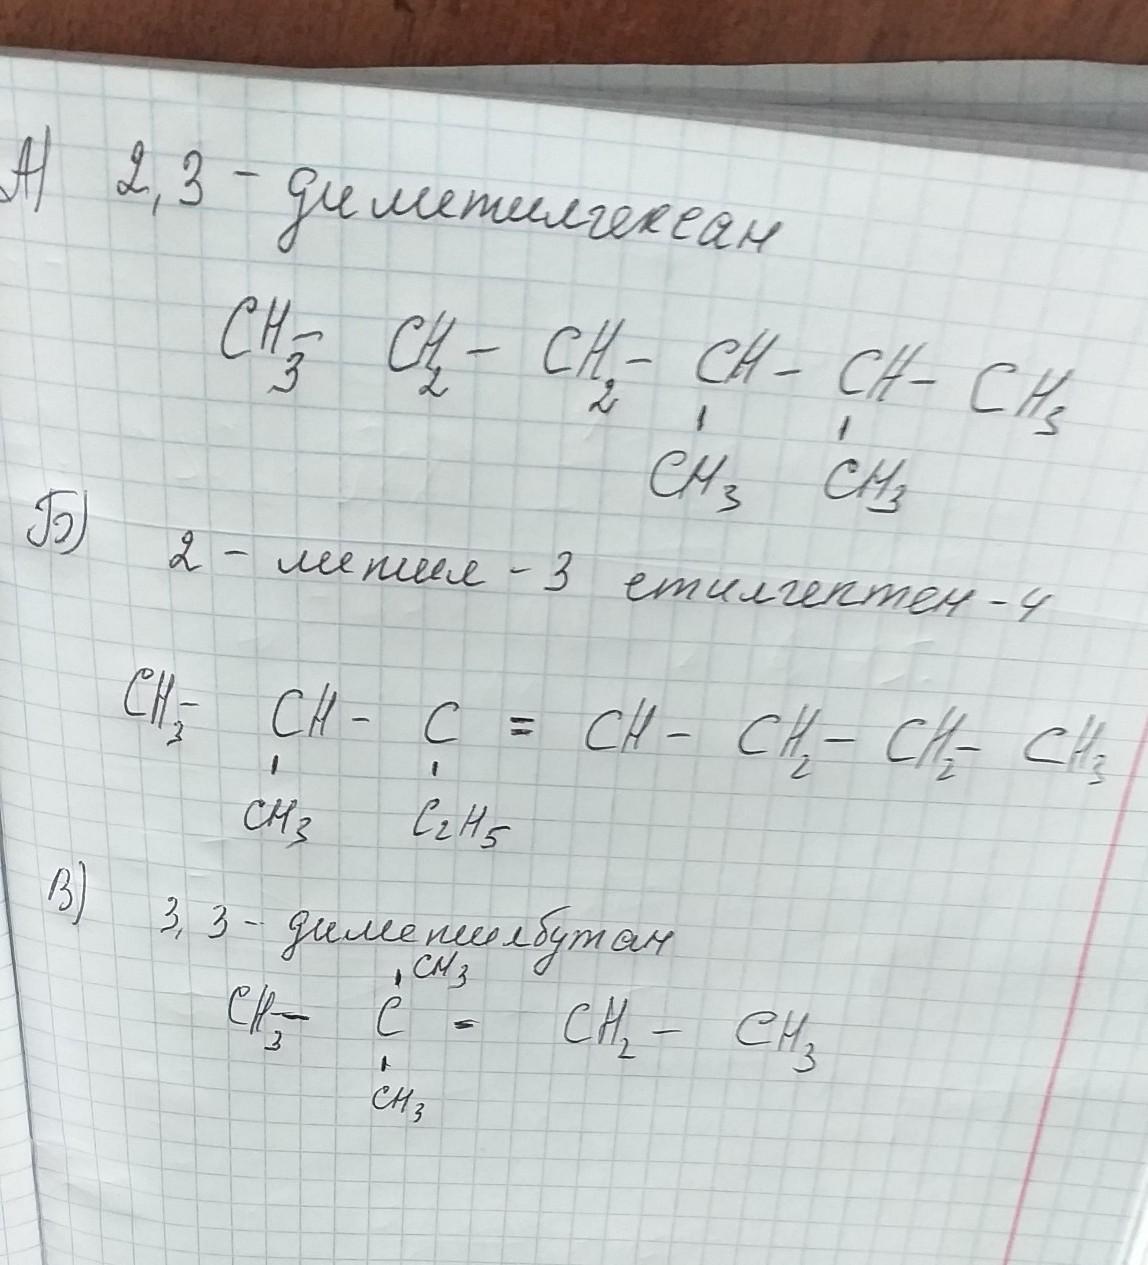 А) 2,3 - диметилгексан
CH3 - CH2 - CH2 - CH - CH - CH3
CH3 CH3
Б) 2 - метил - 3 етилгектен - 4
CH3 - CH - C = CH - CH2 - CH2 - CH3
CH3 C2H5
В) 3,3 - диметилбутан
CH3
CH3 - C - CH2 - CH3
CH3